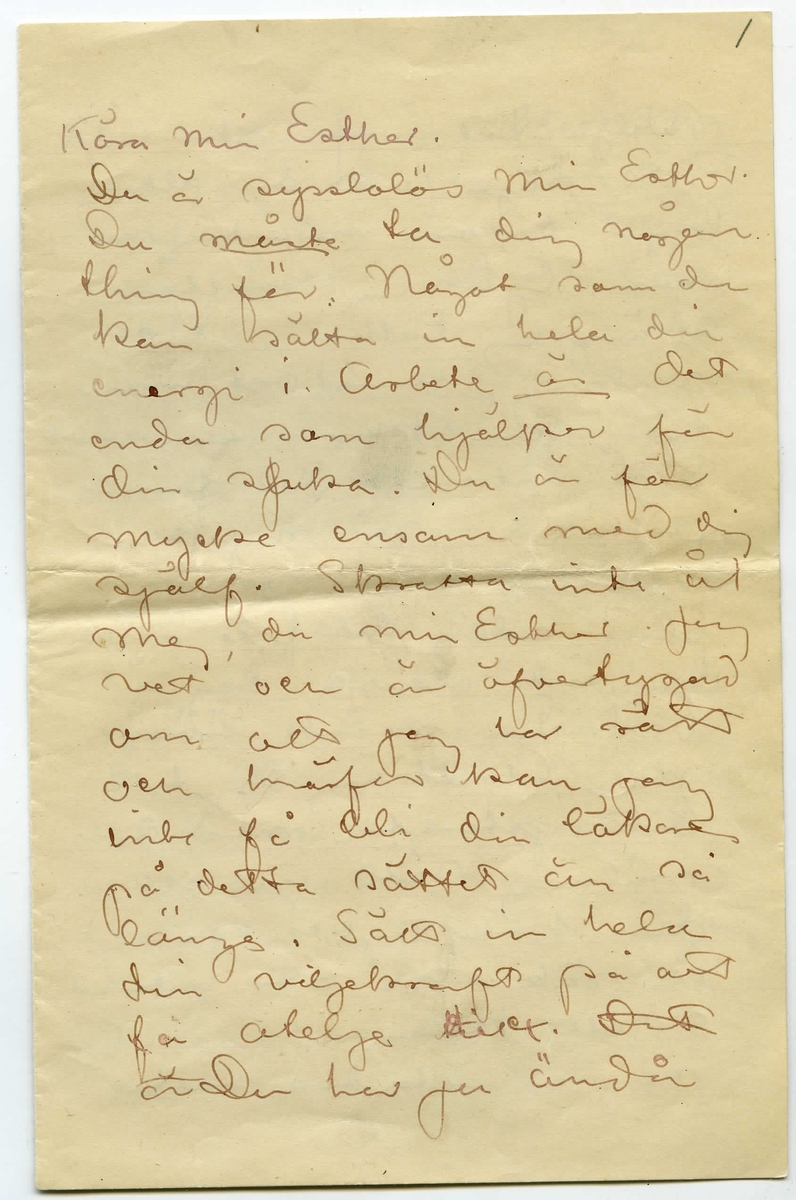 1
Kära Min Esther.
Du är sysslolös Min Esther.
Du måste ta dig någon
thing för. Något som du
kan sätta in hela din
energi i. Arbete är det
enda som hjälper för
din sjuka. Du är för
mycke ensam med dig
själf. Skratta inte åt
mej, du min Esther. Jag
vet och är öfvertygad
om att jag har rätt
och hvarför kan jag
inte få bli din läkare
på detta sättet än så
länge. Sätt in hela
din viljekraft på att
få atelje. Det
är Du har ju ändå